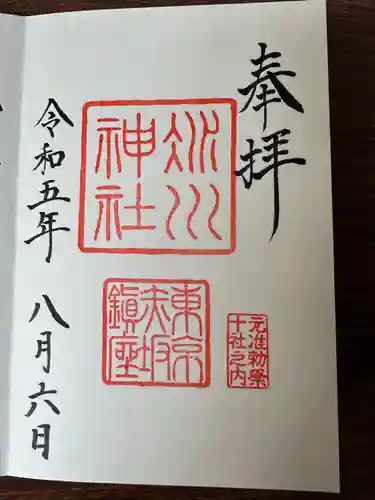 奉拝
氷川
神社
東京
赤坂
鎮座
元准勅祭
十社之内
令和五年 八月六日